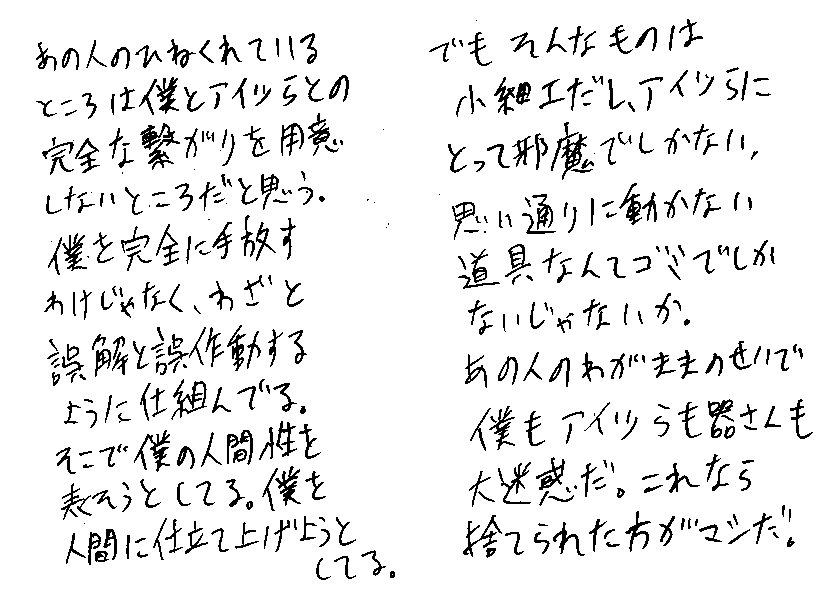 あの人のひねくれている
ところは僕とアイツらとの
完全な繋がりを用意
しないところだと思う。
僕を完全に手放す
わけじゃなく、わざと
誤解と誤作動する
ように仕組んでる。
そこで僕の人間性を
表そうとしてる。僕を
人間に仕立て上げようと
してる。
でも そんなものは
小細工だし、アイツらに
とって邪魔でしかない、
思い通りに動かない
道具なんてゴミでしか
ないじゃないか。
あの人のわがままのせいで
僕もアイツらも器さんも
大迷惑だ。これなら
捨てられた方がマシだ。